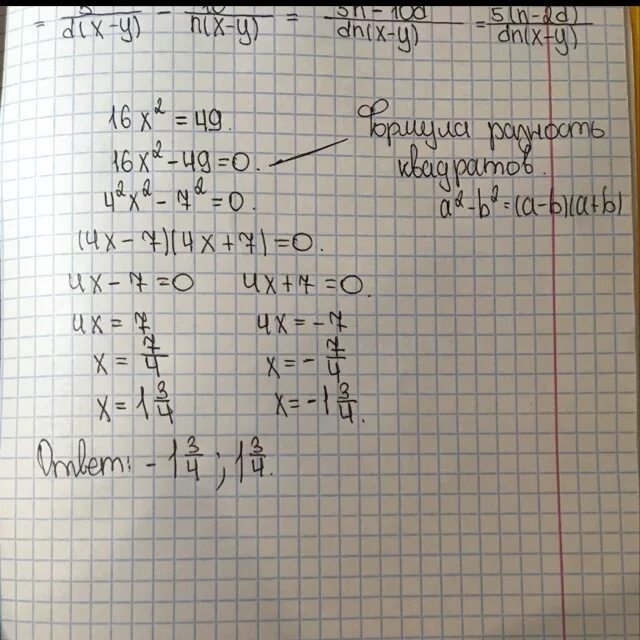 = 5/d(x-y) - 10/n(x-y) = 5n-10d/dn(x-y) = 5(n-2d)/dn(x-y)
16x² = 49.
16x² - 49 = 0.
Формула разность
квадратов.
a² - b² = (a-b)(a+b)
4²x² - 7² = 0.
(4x - 7)(4x + 7) = 0.
4x - 7 = 0 4x + 7 = 0.
4x = 7 4x = -7
x = 7/4 x = - 7/4
x = 1 3/4 x = -1 3/4.
Ответ: - 1 3/4 ; 1 3/4.